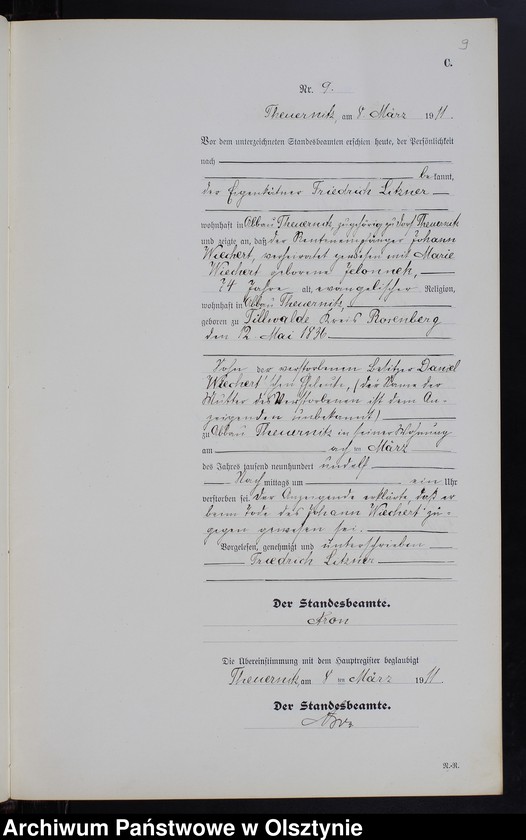 9
C.
Nr. 9.
Theuernitz, am 8 März 1911.
Vor dem unterzeichneten Standesbeamten erschien heute, der Persönlichkeit
nach
bekannt,
der Eigenkätner Friedrich Litzner
wohnhaft in Abbau Theuernitz, zugehörig zu Dorf Theuernitz
und zeigte an, daß der Rentenempfänger Johann
Wiechert, verheiratet gewesen mit Marie
Wiechert geborene Jelonnek,
74 Jahre alt, evangelischer Religion,
wohnhaft in Abbau Theuernitz,
geboren zu Tillwalde Kreis Rosenberg
den 12. Mai 1836
Sohn der verstorbenen Besitzer Daniel
Wiechert'schen Eheleute, (der Name der
Mutter des Verstorbenen ist dem An-
zeigenden unbekannt)
zu Abbau Theuernitz in seiner Wohnung
am acht März
des Jahres tausend neunhundert und elf
Nachmittags um ein Uhr
verstorben sei. Der Anzeigende erklärte, daß er
beim Tode des Johann Wiechert zu-
gegen gewesen sei.
Vorgelesen, genehmigt und unterschrieben
Friedrich Litzner
Der Standesbeamte.
Die Übereinstimmung mit dem Hauptregister beglaubigt
Theuernitz am 8 ten März 1911.
Der Standesbeamte.
N.-R.
Archiwum Państwowe w Olsztynie